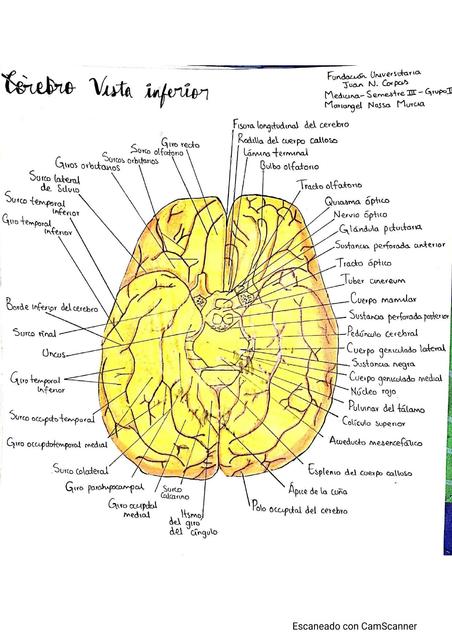 Cerebro Vista inferior
Fundación Universitaria
Juan N. Corpas
Medicina-Semestre III - Grupo I
Mariangel Nossa Murcia
Fisura longitudinal del cerebro
Rodilla del cuerpo calloso
Lámina terminal
Bulbo olfatorio
Giro recto
Surco olfatorio
Surcos orbitarios
Giros orbitarios
Surco lateral
de Silvio
Surco temporal
inferior
Giro temporal
inferior
Borde inferior del cerebro
Surco rinal
Uncus
Giro temporal
Inferior
Surco occipito temporal
Giro occipitotemporal medial
Surco colateral
Giro parahipocampal
Surco
Calcarino
Giro occipital
medial
Itsmo
del giro
del cíngulo
Tracto olfatorio
Quiasma óptico
Nervio óptico
Glándula pituitaria
Sustancia perforada anterior
Tracto óptico
Tuber cinereum
Cuerpo mamilar
Sustancia perforada posterior
Pedúnculo cerebral
Cuerpo geniculado lateral
Sustancia negra
Cuerpo geniculado medial
Núcleo rojo
Pulvinar del tálamo
Colículo superior
Acueducto mesencefálico
Esplenio del cuerpo calloso
Ápice de la cuña
Polo occipital del cerebro
Escaneado con CamScanner